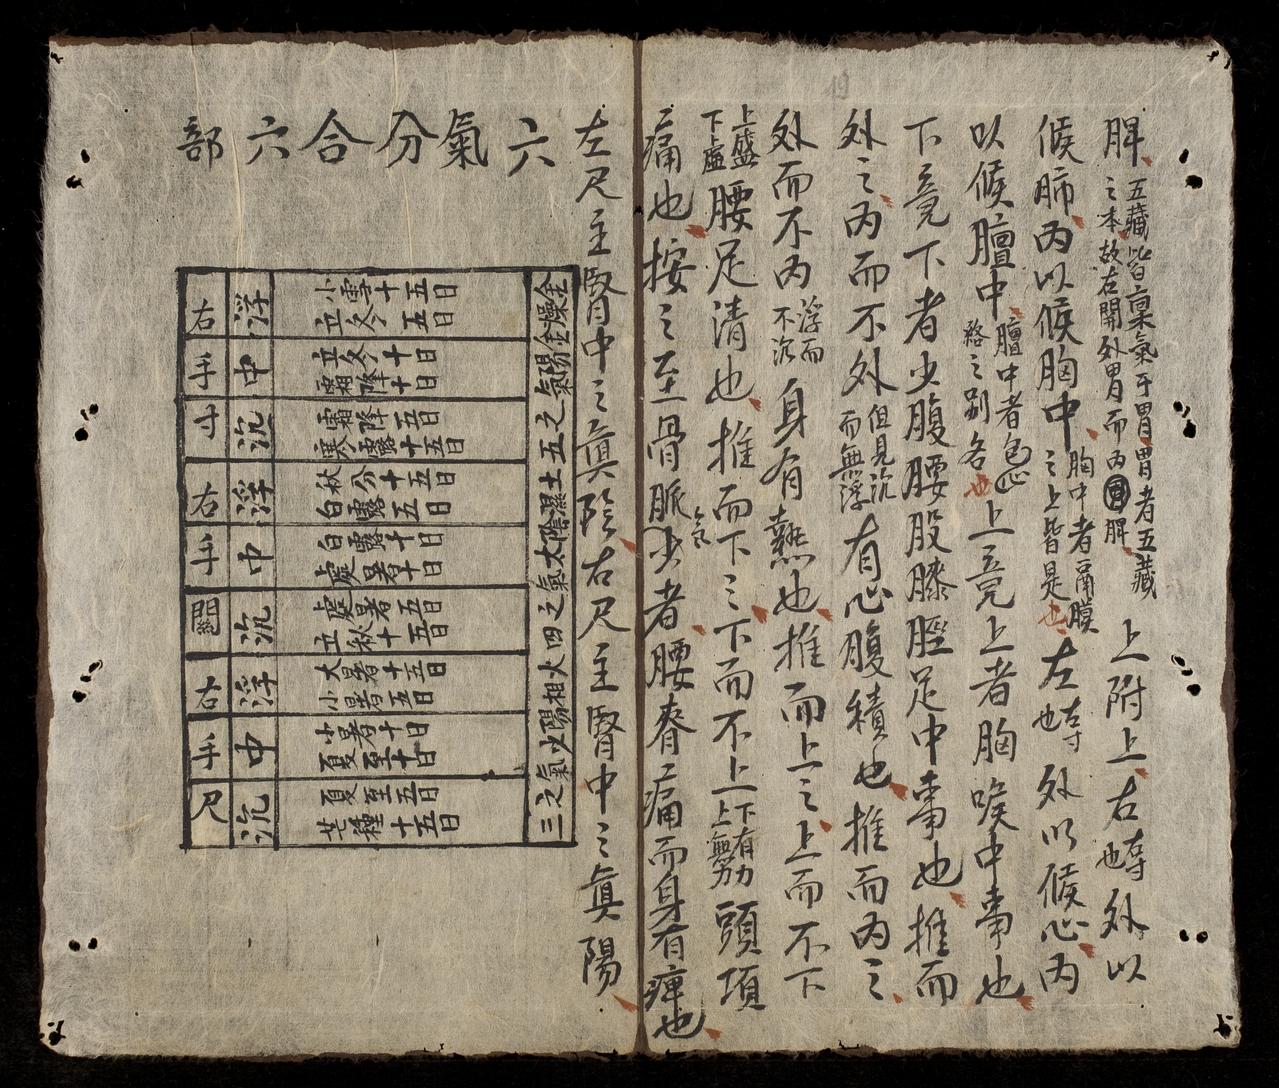 脾五藏皆稟氣于胃胃者五藏之本故右關外胃而內脾上附上右右寸也外以
候肺內以候胸中胸中者鬲膜之上皆是也左左寸也外以候心內
以候膻中膻中者包心絡之別名也上竟上者胸喉中事也
下竟下者少腹腰股膝脛足中事也推而
外之內而不外但見沉而無浮有心腹積也推而內之
外而不內浮而不沉身有熱也推而上之上而不下
上盛下虛腰足清也推而下之下而不上下有力上無力頭項
痛也按之至骨脈氣少者腰脊痛而身有痺也
左尺主腎中之真陰右尺主腎中之真陽
六氣分合六部
三之氣少陽相火四之氣太陰濕土五之氣陽金燥金
右手寸
浮 小雪十五日 立冬五日
中 立冬十日 霜降十日
沉 霜降五日 寒露十五日
右手關
浮 秋分十五日 白露五日
中 白露十日 處暑十日
沉 處暑五日 立秋十五日
右手尺
浮 大暑十五日 小暑五日
中 小暑十日 夏至十日
沉 夏至五日 芒種十五日